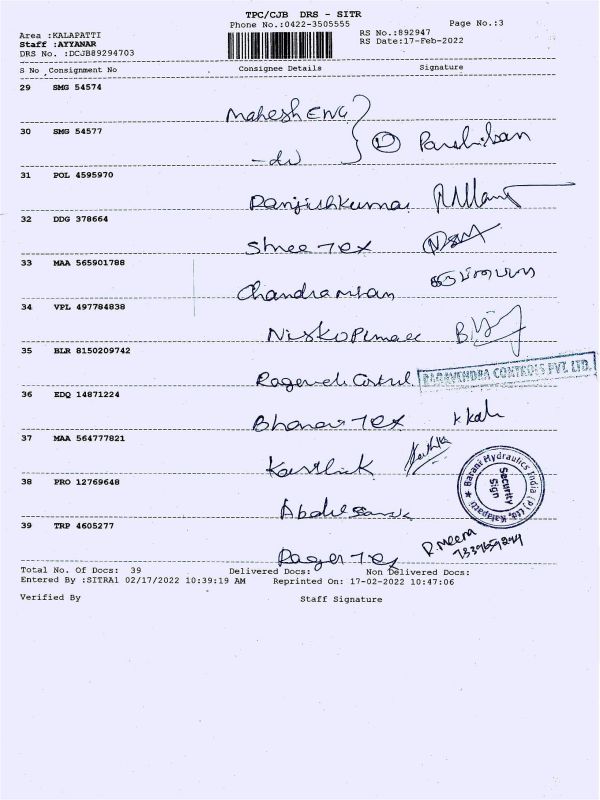 TPC/CJB DRS - SITR
Phone No.:0422-3505555
Page No.:3
Area :KALAPATTI
Staff :AYYANAR
DRS No. :DCJB89294703
RS No.:892947
RS Date:17-Feb-2022
S No Consignment No Consignee Details Signature
29 SMG 54574
Mahesh ENG
30 SMG 54577
12
-do
31 POL 4595970
Ranjishkumar
32 DDG 378664
Shree Tex
33 MAA 565901788
34 VPL 497784838
35 BLR 8150209742
RAGAVENDRA CONTROLS PVT. LTD.
36 EDQ 14871224
Bhanav Tex
37 MAA 564777821
Karthik
38 PRO 12769648
Barani Hydraulics India (P) Ltd, Kalapatti
Security
Sign
Abdul
39 TRP 4605277
R. Meera
Tex
Total No. Of Docs: 39 Delivered Docs: Non Delivered Docs:
Entered By :SITRA1 02/17/2022 10:39:19 AM Reprinted On: 17-02-2022 10:47:06
Verified By Staff Signature